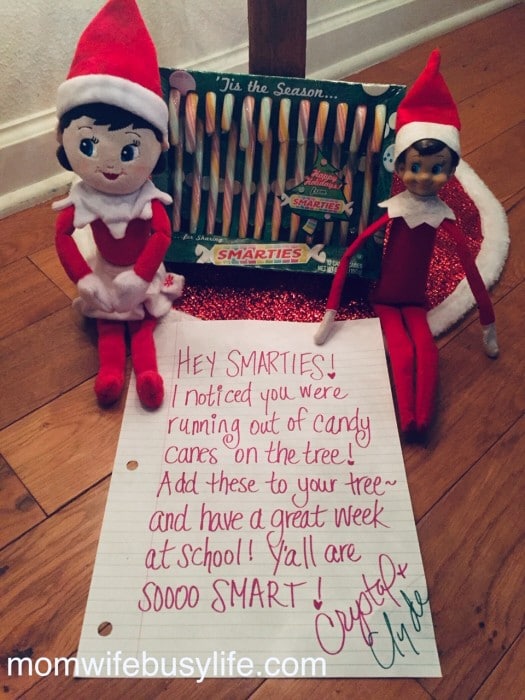 'Tis the Season...
Happy Holidays!
SMARTIES
...for Sharing
SMARTIES
HEY SMARTIES!
I noticed you were
running out of candy
canes on the tree!
Add these to your tree~
and have a great week
at school! Y'all are
SOOOO SMART!
Crystal +
Clyde
momwifebusylife.com